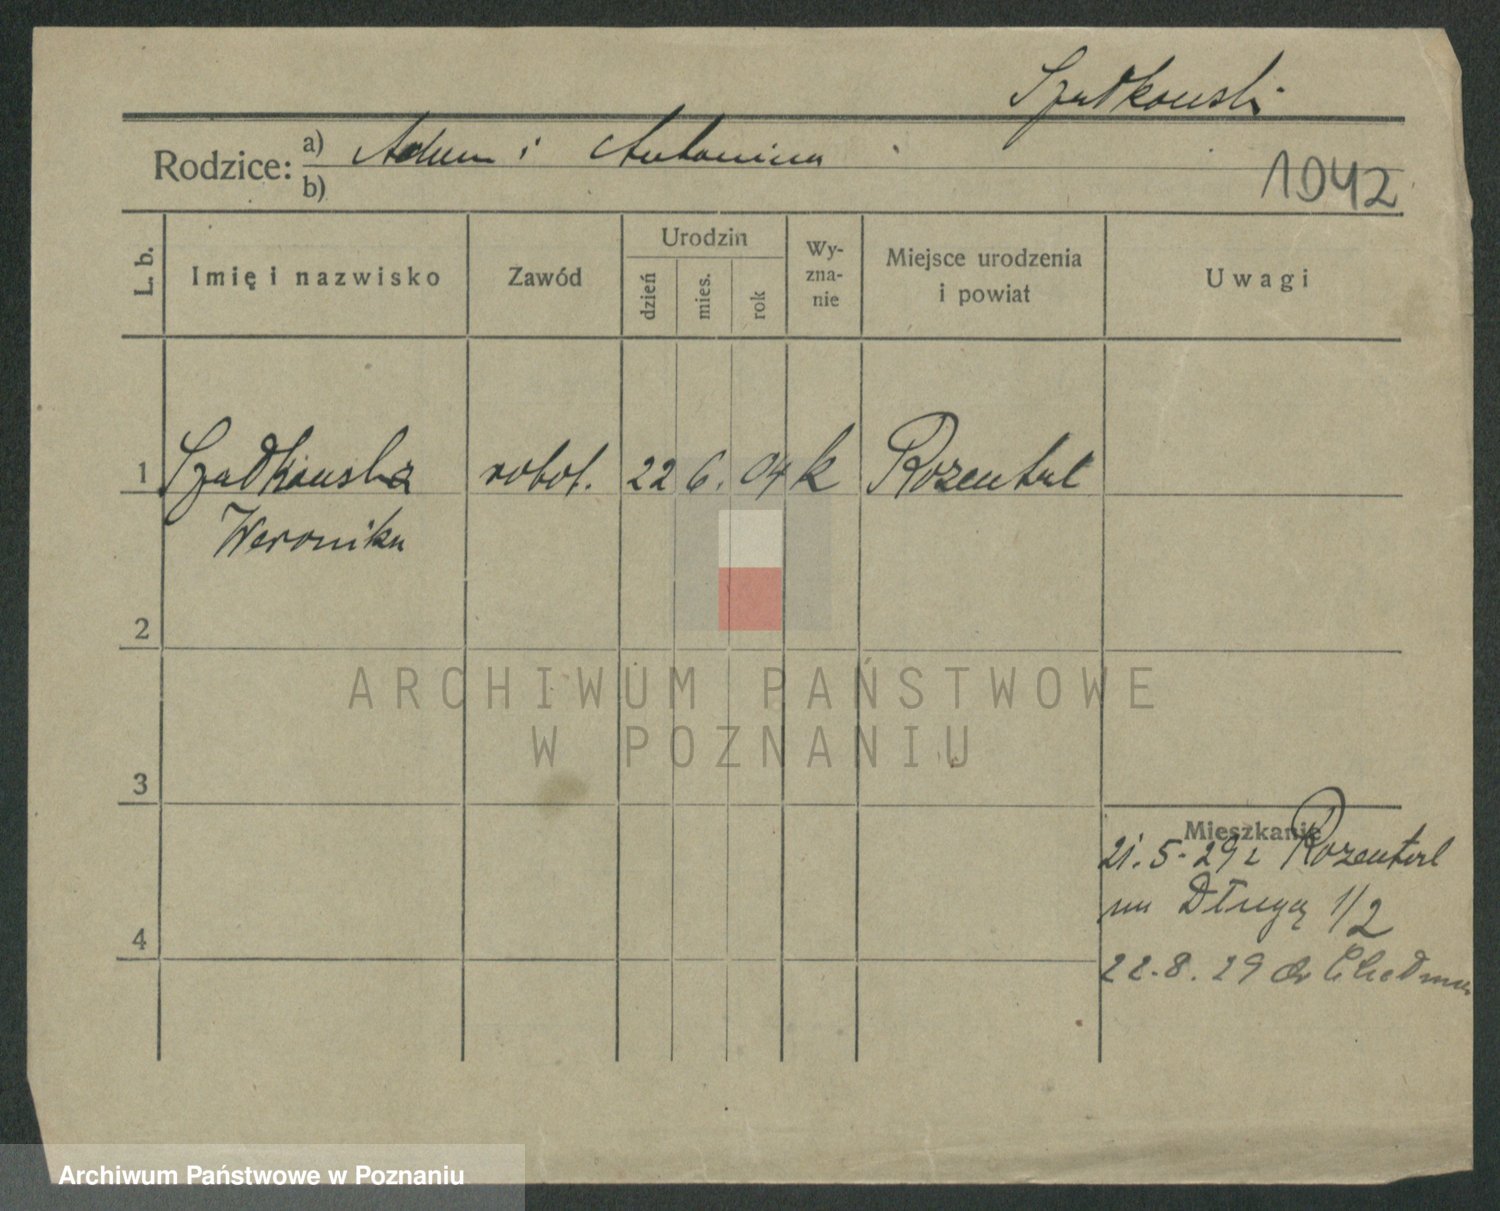 Szadkowski
Rodzice: a) Adam i Antonina
b)
1042
L. b. Imię i nazwisko Zawód Urodzin dzień mies. rok Wy-zna-nie Miejsce urodzenia i powiat Uwagi
1 Szadkowska robot. 22 6. 04 k Rozental
Weronika
2
ARCHIWUM PAŃSTWOWE
W POZNANIU
3
Mieszkanie
21. 5. 29 z Rozental
na Długą 1/2
4
22. 8. 29 do
Archiwum Państwowe w Poznaniu